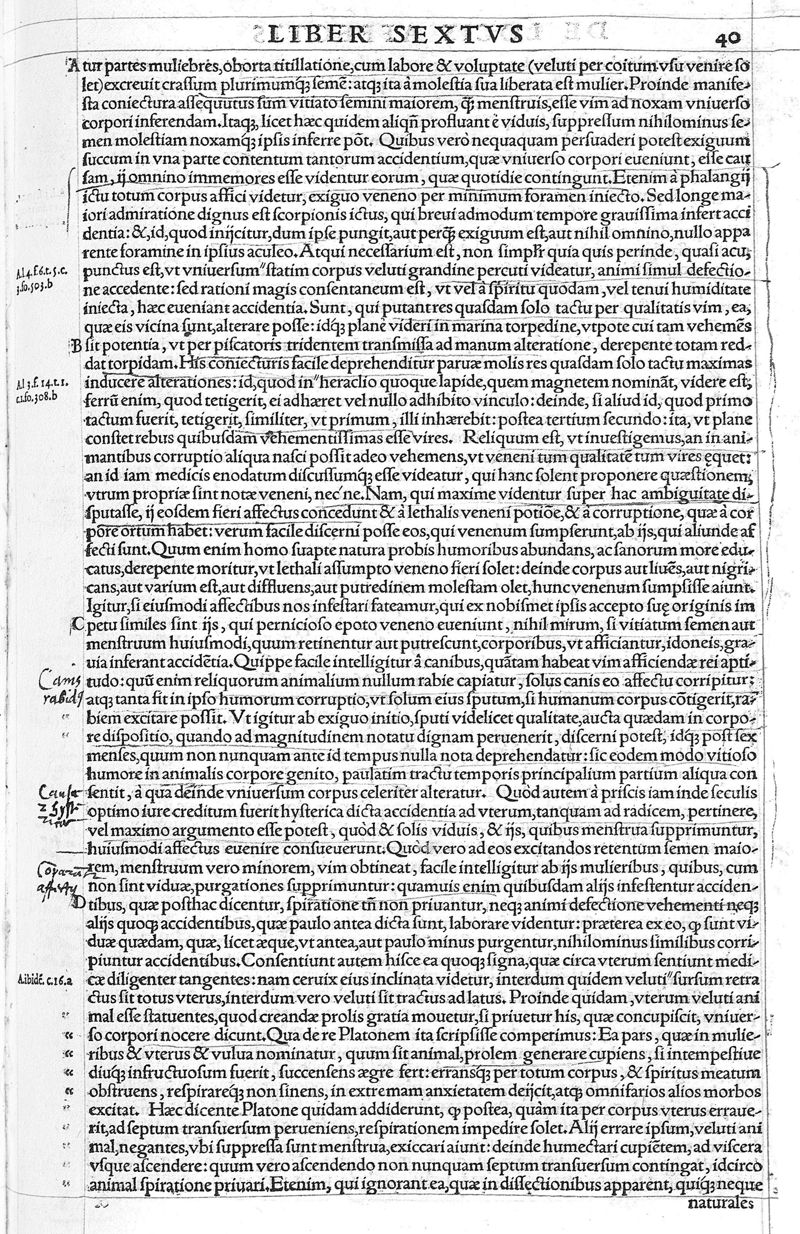 LIBER SEXTVS 40
A tur partes muliebres, oborta titillatione, cum labore & voluptate (veluti per coitum vsu venire so
let) excreuit crassum plurimumqꝫ semẽ: atqꝫ ita à molestia sua liberata est mulier. Proinde manife-
sta coniectura assequutus sum vitiato semini maiorem, q̃ꝫ menstruis, esse vim ad noxam vniuerso
corpori inferendam. Itaqꝫ, licet hæc quidem aliqñ profluant è viduis, suppressum nihilominus se-
men molestiam noxamqꝫ ipsis inferre põt. Quibus verò nequaquam persuaderi potest exiguum
succum in vna parte contentum tantorum accidentium, quæ vniuerso corpori eueniunt, esse cau
sam, ij omnino immemores esse videntur eorum, quæ quotidie contingunt. Etenim à phalangij
ictu totum corpus affici videtur, exiguo veneno per minimum foramen iniecto. Sed longe ma-
iori admiratione dignus est scorpionis ictus, qui breui admodum tempore grauissima infert acci
dentia: &, id, quod inijcitur, dum ipse pungit, aut perq̃ꝫ exiguum est, aut nihil omnino, nullo appa
rente foramine in ipsius aculeo. Atqui necessarium est, non simplr̃ quia quis perinde, quasi acu,
Al 4. f. 6. t. 5. c.
3. fo. 503. b
punctus est, vt vniuersum " statim corpus veluti grandine percuti videatur, animi simul defectio-
ne accedente: sed rationi magis consentaneum est, vel à spiritu quodam, vel tenui humiditate
iniecta, hæc eueniant accidentia. Sunt, qui putant res quasdam solo tactu per qualitatis vim, ea,
quæ eis vicina sunt, alterare posse: idqꝫ plane videri in marina torpedine, vtpote cui tam vehemẽs
B sit potentia, vt per piscatoris tridentem transmissa ad manum alteratione, derepente totam red-
dat torpidam. His coniecturis facile deprehenditur paruæ molis res quasdam solo tactu maximas
Al 3. f. 14. t. 1.
c. 1. fo. 308. b
inducere alterationes: id, quod in " heraclio quoque lapide, quem magnetem nominãt, videre est,
ferrũ enim, quod tetigerit, ei adhæret vel nullo adhibito vinculo: deinde, si aliud id, quod primo
tactum fuerit, tetigerit, similiter, vt primum, illi inhærebit: postea tertium secundo: ita, vt plane
constet rebus quibusdam vehementissimas esse vires. Reliquum est, vt inuestigemus, an in ani-
mantibus corruptio aliqua nasci possit adeo vehemens, vt veneni tum qualitatẽ tum vires ęquet:
an id iam medicis enodatum discussumqꝫ esse videatur, qui hanc solent proponere quæstionem,
vtrum propriæ sint notæ veneni, nec'ne. Nam, qui maxime videntur super hac ambiguitate di-
sputasse, ij eosdem fieri affectus concedunt & à lethalis veneni potiõe, & à corruptione, quæ à cor
pore ortum habet: verum facile discerni posse eos, qui venenum sumpserunt, ab ijs, qui aliunde af
fecti sunt. Quum enim homo suapte natura probis humoribus abundans, ac sanorum more edu-
catus, derepente moritur, vt lethali assumpto veneno fieri solet: deinde corpus aut liuẽs, aut nigri-
cans, aut varium est, aut diffluens, aut putredinem molestam olet, hunc venenum sumpsisse aiunt.
Igitur, si eiusmodi affectibus nos infestari fateamur, qui ex nobismet ipsis accepto suę originis im
C petu similes sint ijs, qui pernicioso epoto veneno eueniunt, nihil mirum, si vitiatum semen aut
menstruum huiusmodi, quum retinentur aut putrescunt, corporibus, vt afficiantur, idoneis, gra-
uia inferant accidẽtia. Quippe facile intelligitur à canibus, quãtam habeat vim afficiendæ rei apti-
Canis
rabidꝯ
tudo: quũ enim reliquorum animalium nullum rabie capiatur, solus canis eo affectu corripitur:
atqꝫ tanta fit in ipso humorum corruptio, vt solum eius sputum, si humanum corpus cõtigerit, ra-
biem excitare possit. Vt igitur ab exiguo initio, sputi videlicet qualitate, aucta quædam in corpo-
re dispositio, quando ad magnitudinem notatu dignam peruenerit, discerni potest, idqꝫ post sex
menses, quum non nunquam ante id tempus nulla nota deprehendatur: sic eodem modo vitioso
humore in animalis corpore genito, paulatim tractu temporis principalium partium aliqua con
sentit, à qua deinde vniuersum corpus celeriter alteratur. Quòd autem à priscis iam inde seculis
optimo iure creditum fuerit hysterica dicta accidentia ad vterum, tanquam ad radicem, pertinere,
vel maximo argumento esse potest, quòd & solis viduis, & ijs, quibus menstrua supprimuntur,
huiusmodi affectus euenire consueuerunt. Quòd vero ad eos excitandos retentum semen maio-
rem, menstruum vero minorem, vim obtineat, facile intelligitur ab ijs mulieribus, quibus, cum
non sint viduæ, purgationes supprimuntur: quamuis enim quibusdam alijs infestentur acciden-
D tibus, quæ posthac dicentur, spiratione tñ non priuantur, neqꝫ animi defectione vehementi neqꝫ
alijs quoqꝫ accidentibus, quæ paulo antea dicta sunt, laborare videntur: præterea ex eo, ꝙ sunt vi-
duæ quædam, quæ, licet æque, vt antea, aut paulo minus purgentur, nihilominus similibus corri-
piuntur accidentibus. Consentiunt autem hisce ea quoqꝫ signa, quæ circa vterum sentiunt medi-
A. ibidẽ. c. 16. a
cæ diligenter tangentes: nam ceruix eius inclinata videtur, interdum quidem veluti " sursum retra
ctus sit totus vterus, interdum vero veluti sit tractus ad latus. Proinde quidam, vterum veluti ani
mal esse statuentes, quod creandæ prolis gratia mouetur, si priuetur his, quæ concupiscit, vniuer-
so corpori nocere dicunt. Qua de re Platonem ita scripsisse comperimus: Ea pars, quæ in mulie-
ribus & vterus & vulua nominatur, quum sit animal, prolem generare cupiens, si intempestiue
diuqꝫ infructuosum fuerit, succensens ægre fert: erransqꝫ per totum corpus, & spiritus meatum
obstruens, respirareqꝫ non sinens, in extremam anxietatem deijcit, atqꝫ omnifarios alios morbos
excitat. Hæc dicente Platone quidam addiderunt, ꝙ postea, quàm ita per corpus vterus erraue-
rit, ad septum transuersum perueniens, respirationem impedire solet. Alij errare ipsum, veluti ani
mal, negantes, vbi suppressa sunt menstrua, exiccari aiunt: deinde humectari cupiẽtem, ad viscera
vsque ascendere: quum vero ascendendo non nunquam septum transuersum contingat, idcirco
animal spiratione priuari. Etenim, qui ignorant ea, quæ in dissectionibus apparent, quiqꝫ neque
naturales